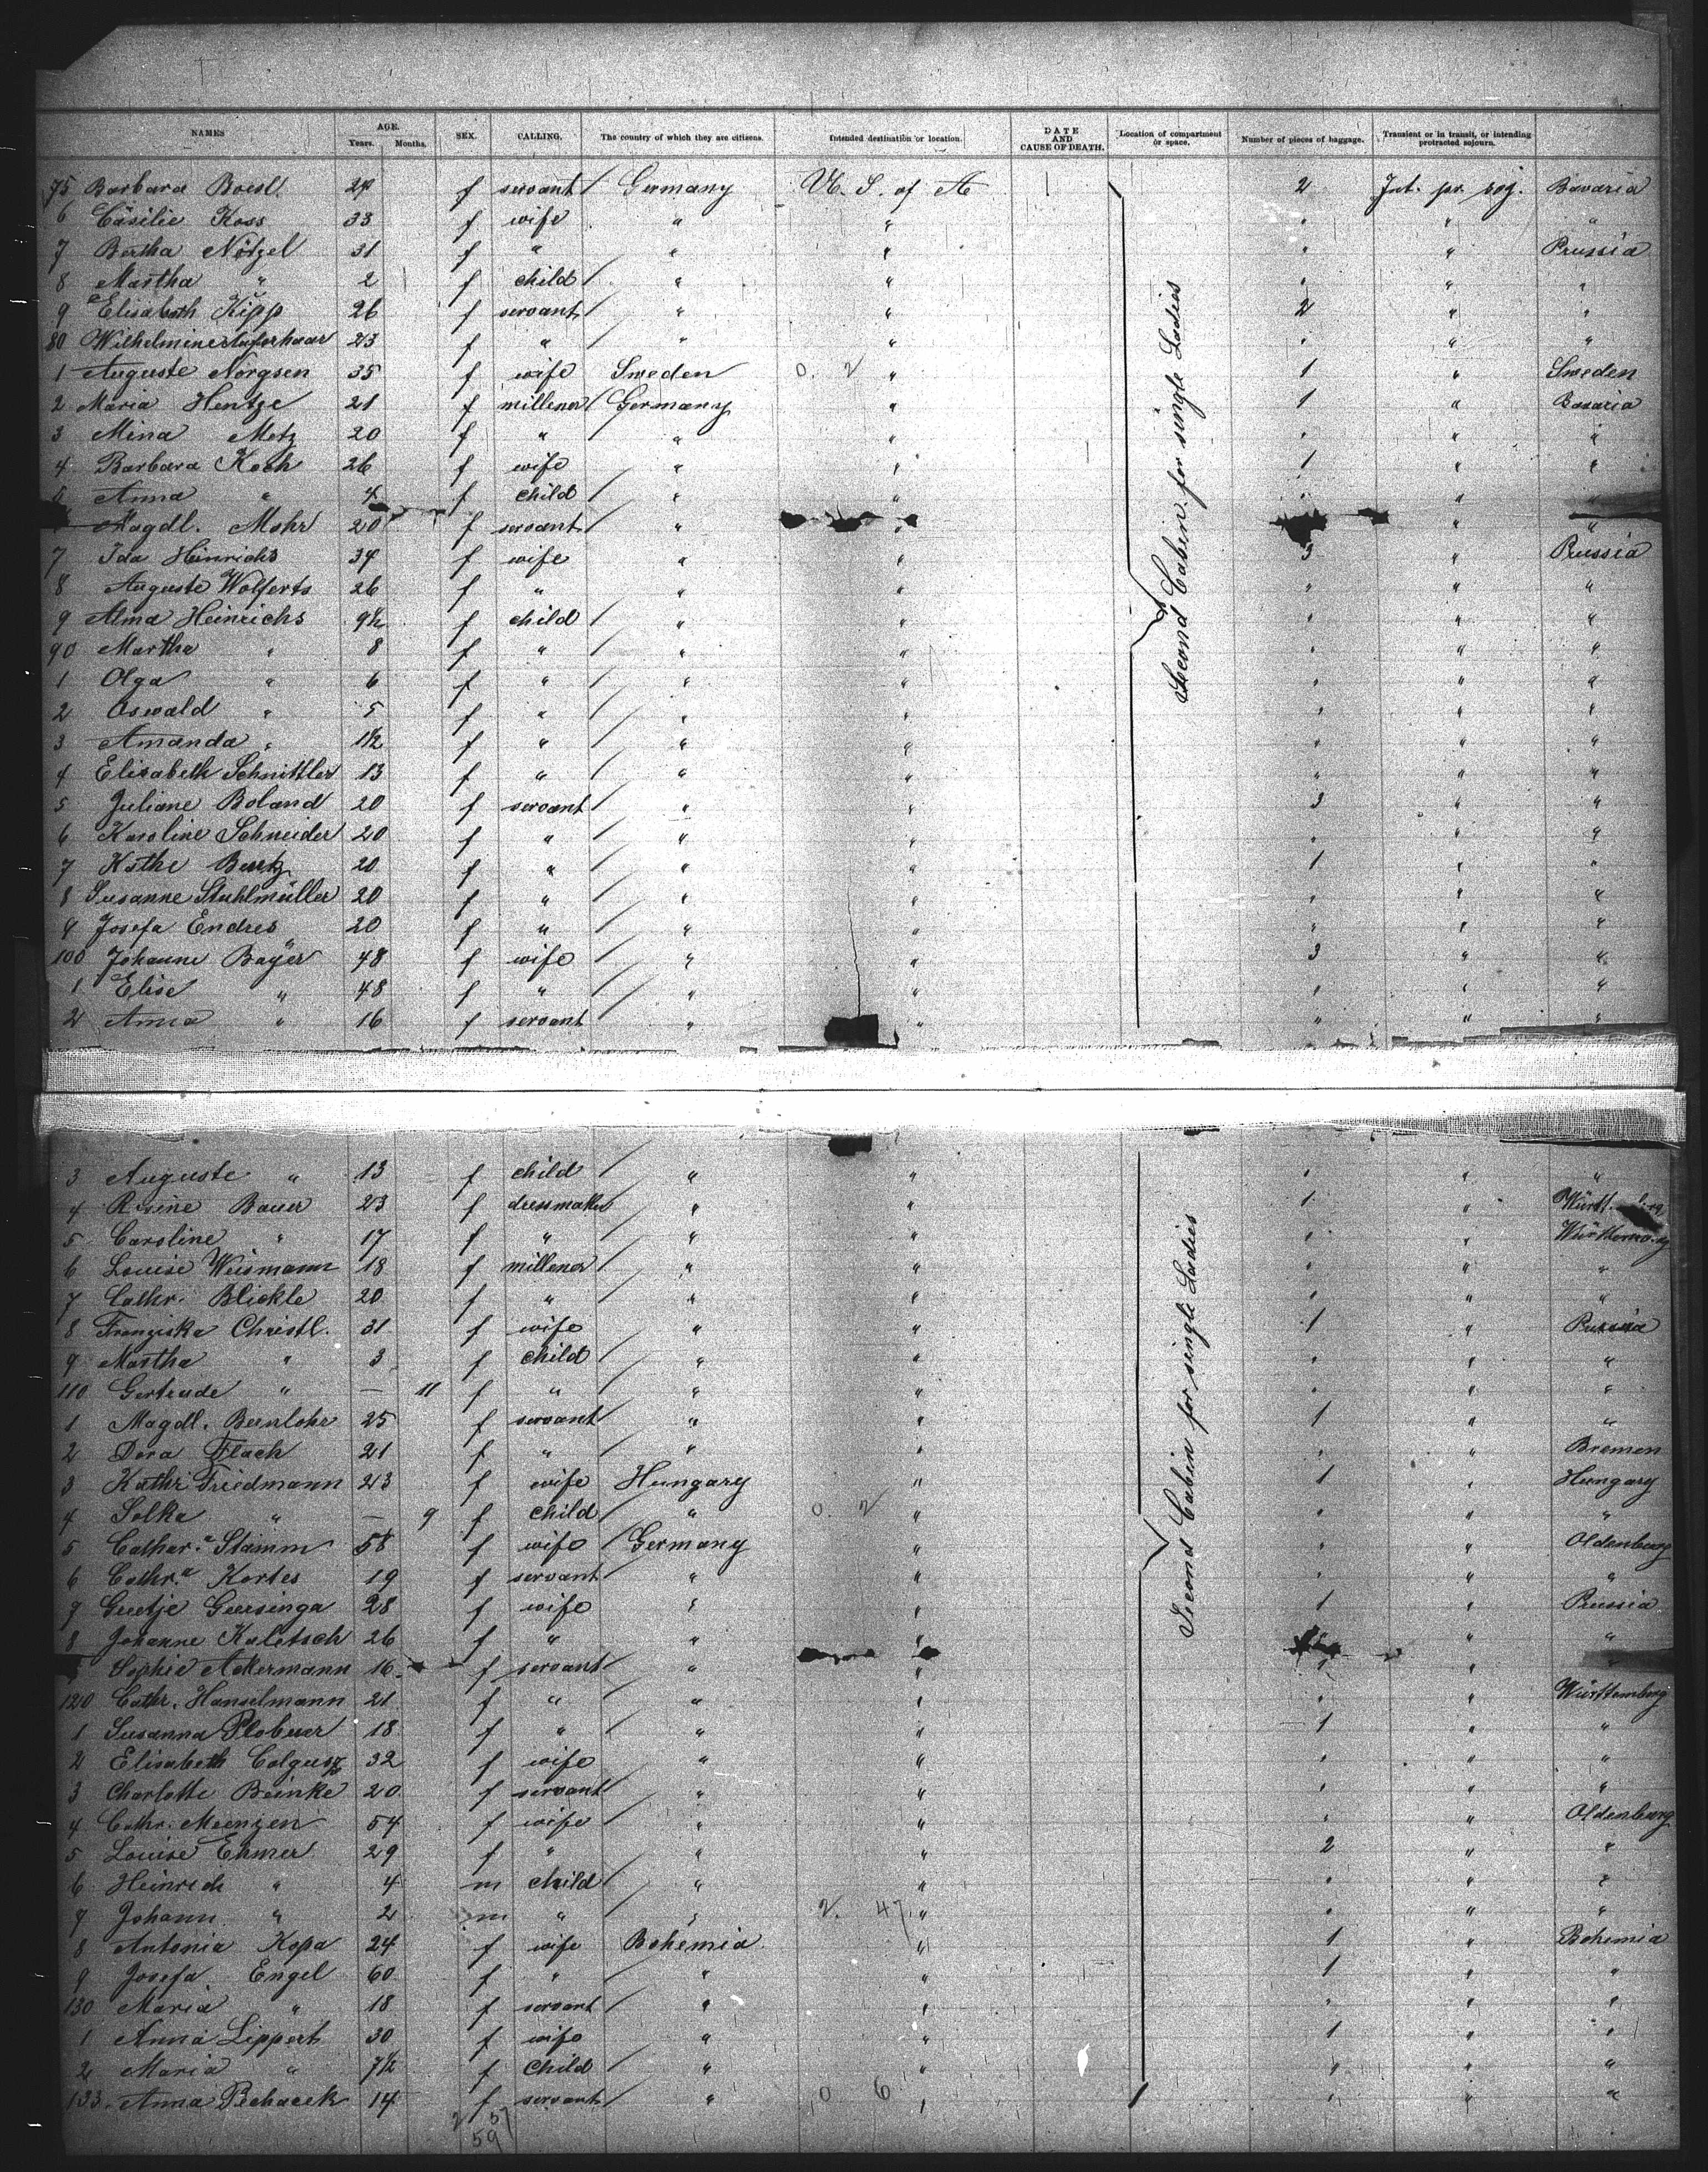 NAMES AGE. Years. Months. SEX. CALLING. The country of which they are citizens. Intended destination or location. DATE AND CAUSE OF DEATH. Location of compartment or space. Number of pieces of baggage. Transient or in transit, or intending protracted sojourn.
75 Barbara Boesl 24 f servant Germany U. S. of A 2 Int. pr. soj. Bavaria
6 Cäsilie Koss 33 f wife " " " " "
7 Bertha Nötzel 31 f " " " " " Prussia
8 Martha " 2 f child " " " " "
9 Elisabeth Kipp 26 f servant " " 2 " "
80 Wilhelmine 23 f " " " " " "
1 Auguste Norgsen 35 f wife Sweden 0. 2 " 1 " Sweden
2 Maria Hentze 21 f millener Germany " 1 " Bavaria
3 Mina Metz 20 f " " " " " "
4 Barbara Koch 26 f wife " " 1 " "
5 Anna " 4 f child " " " " "
Magdl. Mohr 20 f servant " " " "
7 Ida Heinrichs 34 f wife " 3 " Prussia
8 Auguste Wolferts 26 f " " " " " "
9 Alma Heinrichs 9½ f child " " " " "
90 Martha " 8 f " " " " " "
1 Olga " 6 f " " " " " "
2 Oswald " 5 f " " " " " "
3 Amanda " 1½ f " " " " " "
4 Elisabeth Schnittler 13 f " " " " " "
5 Juliane Boland 20 f servant " " 3 " "
6 Karoline Schneider 20 f " " " " " "
7 Käthe 20 f " " " 1 " "
8 Susanne Stuhlmüller 20 f " " " " " "
9 Josefa Endres 20 f " " " " " "
100 Johanne Bayer 48 f wife " " 3 " "
1 Elise " 48 f " " " " " "
2 Anna " 16 f servant " " " " "
Second Cabin for single Ladies
3 Auguste " 13 f child " " " " "
4 Rosine Bauer 23 f dressmaker " " 1 " Württ
5 Caroline " 17 f " " " " " Württemberg
6 Louise Weismann 18 f millener " " " " "
7 Cathr. Blickle 20 f " " " " " "
8 Franziska Christl. 31 f wife " " 1 " Prussia
9 Martha " 3 f child " " " " "
110 Gertrude " — 11 f " " " " " "
1 Magdl. Beenlohr 25 f servant " " 1 " "
2 Dora Flach 21 f " " " " " Bremen
3 Kathr. Friedmann 23 f wife Hungary " 1 " Hungary
4 Solka " — 9 f child " 0. 2 " " " "
5 Cathar.ª Stamm 58 f wife Germany " " " Oldenburg
6 Cathr.ª Kortes 19 f servant " " " " "
7 Geersinga 28 f wife " " 1 " Prussia
8 Johanne Kaletsch 26 f " " " " "
Sophie Akermann 16 f servant " " 1 " "
120 Cathr. Hanselmann 21 f " " " " " Württemberg
1 Susanna Plobuer 18 f " " " 1 " "
2 Elisabeth 32 f wife " " " " "
3 Charlotte Beinke 20 f servant " " " " "
4 Cathr. Meenzen 54 f wife " " " " Oldenburg
5 Louise Ehmer 29 f " " " 2 " "
6 Heinrich " 4 m child " " " " "
7 Johann " 2 m " " 2. 47. " " " "
8 Antonia Kopa 24 f wife Bohemia " 1 " Bohemia
9 Josefa Engel 60 f " " " 1 " "
130 Maria " 18 f servant " " " " "
1 Anna Lippert 30 f wife " " 1 " "
2 Maria " 7½ f child " " " " "
133. Anna Pechacek 14 f servant " 0 6 " " " "
Second Cabin for single Ladies
2 57
59